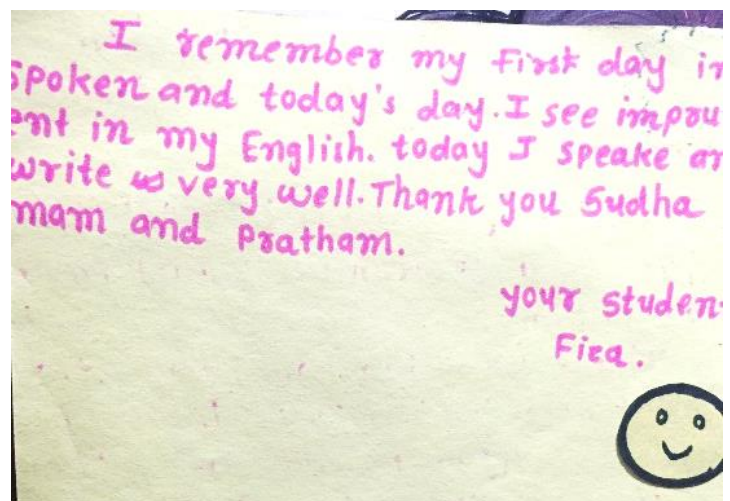 I remember my First day in
Spoken and today's day. I see improv
ent in my English. today I speake an
write very well. Thank you Sudha
mam and Pratham.
your studen
Fiza.